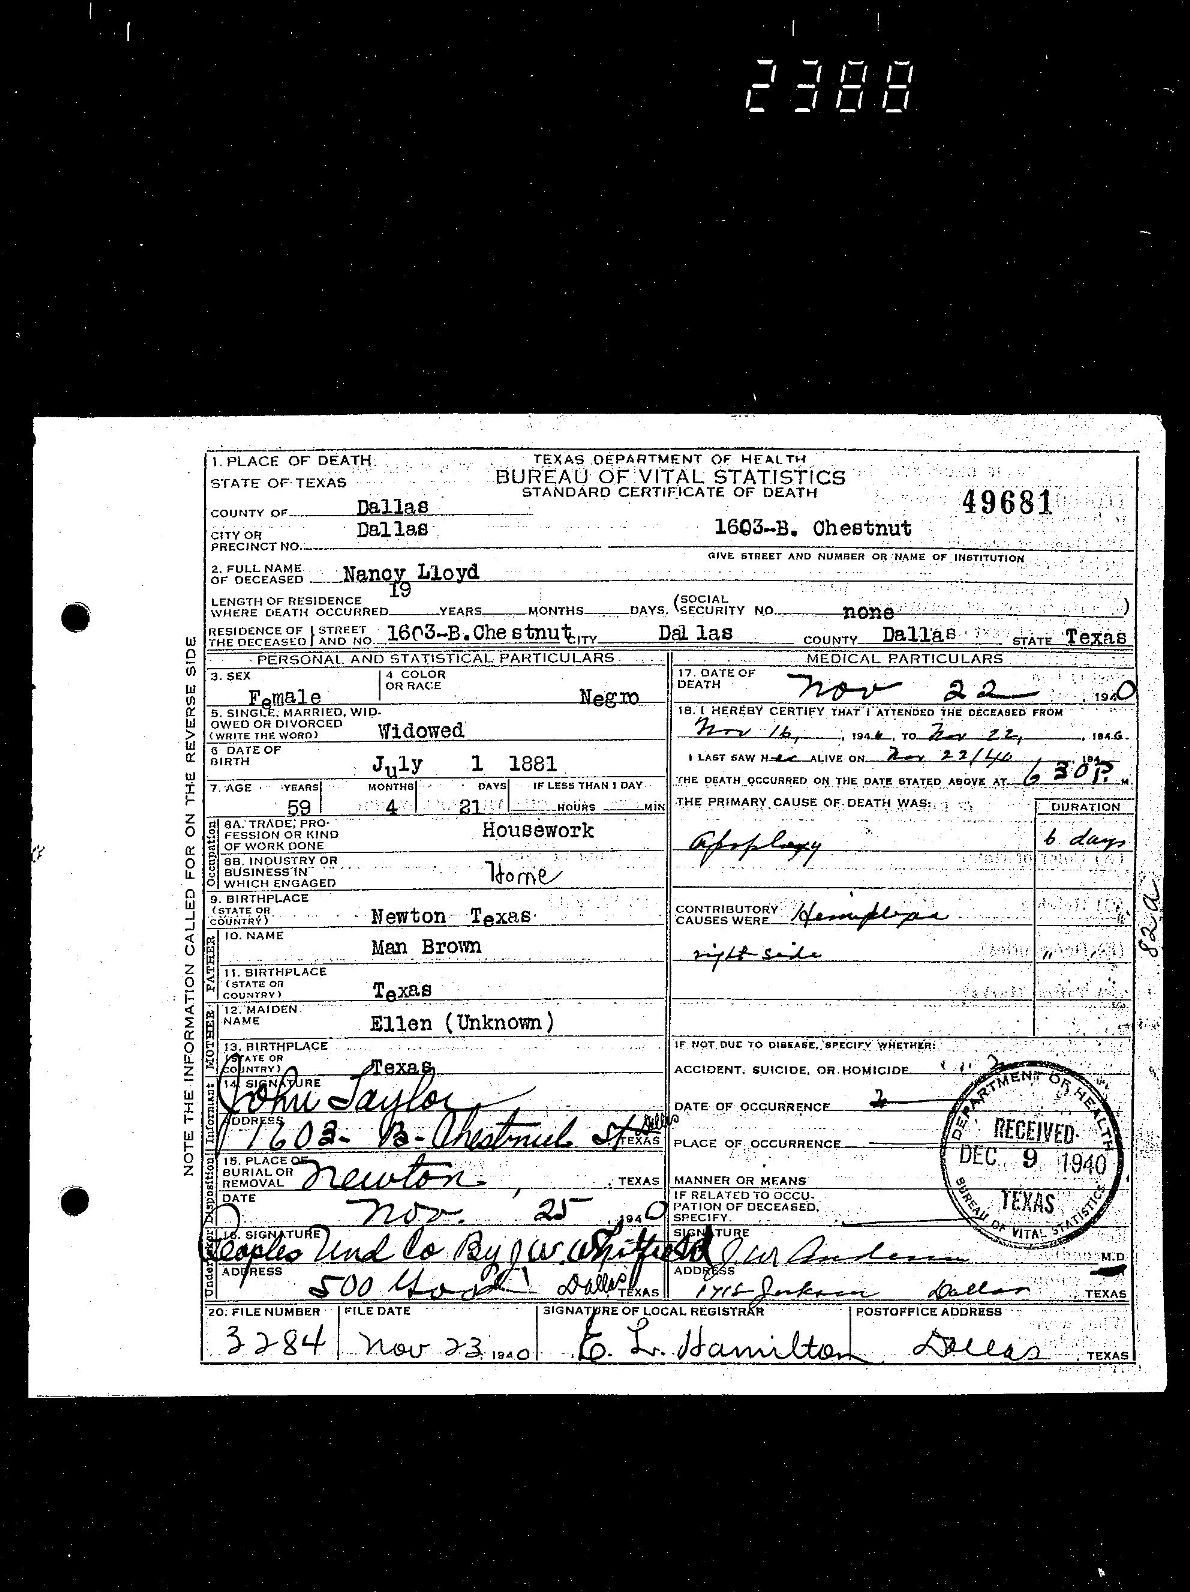 2388
1. PLACE OF DEATH TEXAS DEPARTMENT OF HEALTH
STATE OF TEXAS BUREAU OF VITAL STATISTICS
STANDARD CERTIFICATE OF DEATH 49681
COUNTY OF Dallas
CITY OR PRECINCT NO. Dallas 1603-B. Chestnut
GIVE STREET AND NUMBER OR NAME OF INSTITUTION
2. FULL NAME OF DECEASED Nancy Lloyd
LENGTH OF RESIDENCE WHERE DEATH OCCURRED 19 YEARS MONTHS DAYS. (SOCIAL SECURITY NO. none )
RESIDENCE OF THE DECEASED STREET AND NO. 1603-B.Chestnut CITY Dallas COUNTY Dallas STATE Texas
NOTE THE INFORMATION CALLED FOR ON THE REVERSE SIDE
PERSONAL AND STATISTICAL PARTICULARS
3. SEX Female 4 COLOR OR RACE Negro
5. SINGLE, MARRIED, WIDOWED OR DIVORCED (WRITE THE WORD) Widowed
6 DATE OF BIRTH July 1 1881
7. AGE YEARS 59 MONTHS 4 DAYS 21 IF LESS THAN 1 DAY HOURS MIN
Occupation
8A. TRADE, PROFESSION OR KIND OF WORK DONE Housework
8B. INDUSTRY OR BUSINESS IN WHICH ENGAGED Home
9. BIRTHPLACE (STATE OR COUNTRY) Newton Texas
FATHER
10. NAME Man Brown
11. BIRTHPLACE (STATE OR COUNTRY) Texas
MOTHER
12. MAIDEN NAME Ellen (Unknown)
13. BIRTHPLACE (STATE OR COUNTRY) Texas
Informant
14. SIGNATURE John Taylor
ADDRESS 1603- B- Chestnut St Dallas TEXAS
Disposition
15. PLACE OF BURIAL OR REMOVAL Newton, TEXAS
DATE Nov. 25 1940
16. SIGNATURE Peoples Und Co By J.W. Whitfield
ADDRESS 500 Good Dallas TEXAS
MEDICAL PARTICULARS
17. DATE OF DEATH Nov 22, 1940
18. I HEREBY CERTIFY THAT I ATTENDED THE DECEASED FROM
Nov 16, 1940, TO Nov 22, 1940.
I LAST SAW HER ALIVE ON Nov 22/40 194
THE DEATH OCCURRED ON THE DATE STATED ABOVE AT 6 30 P. M.
THE PRIMARY CAUSE OF DEATH WAS: DURATION
Apoplexy 6 days
CONTRIBUTORY CAUSES WERE Hemiplegia
right side "
82a
IF NOT DUE TO DISEASE, SPECIFY WHETHER:
ACCIDENT, SUICIDE, OR HOMICIDE
DATE OF OCCURRENCE
PLACE OF OCCURRENCE
MANNER OR MEANS
IF RELATED TO OCCUPATION OF DECEASED, SPECIFY
SIGNATURE J.W. Anderson M.D.
ADDRESS 1716 Jackson Dallas TEXAS
DEPARTMENT OF HEALTH
RECEIVED
DEC. 9 1940
TEXAS
BUREAU OF VITAL STATISTICS
20. FILE NUMBER FILE DATE SIGNATURE OF LOCAL REGISTRAR POSTOFFICE ADDRESS
3284 Nov 23, 1940 E. L. Hamilton Dallas, TEXAS